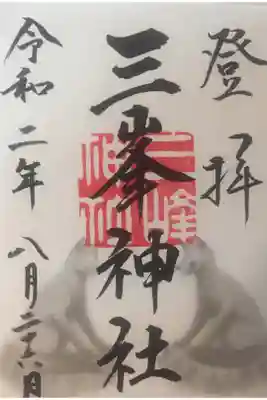 登拝
三峯神社
三峰
神社
令和二年 八月二十六日